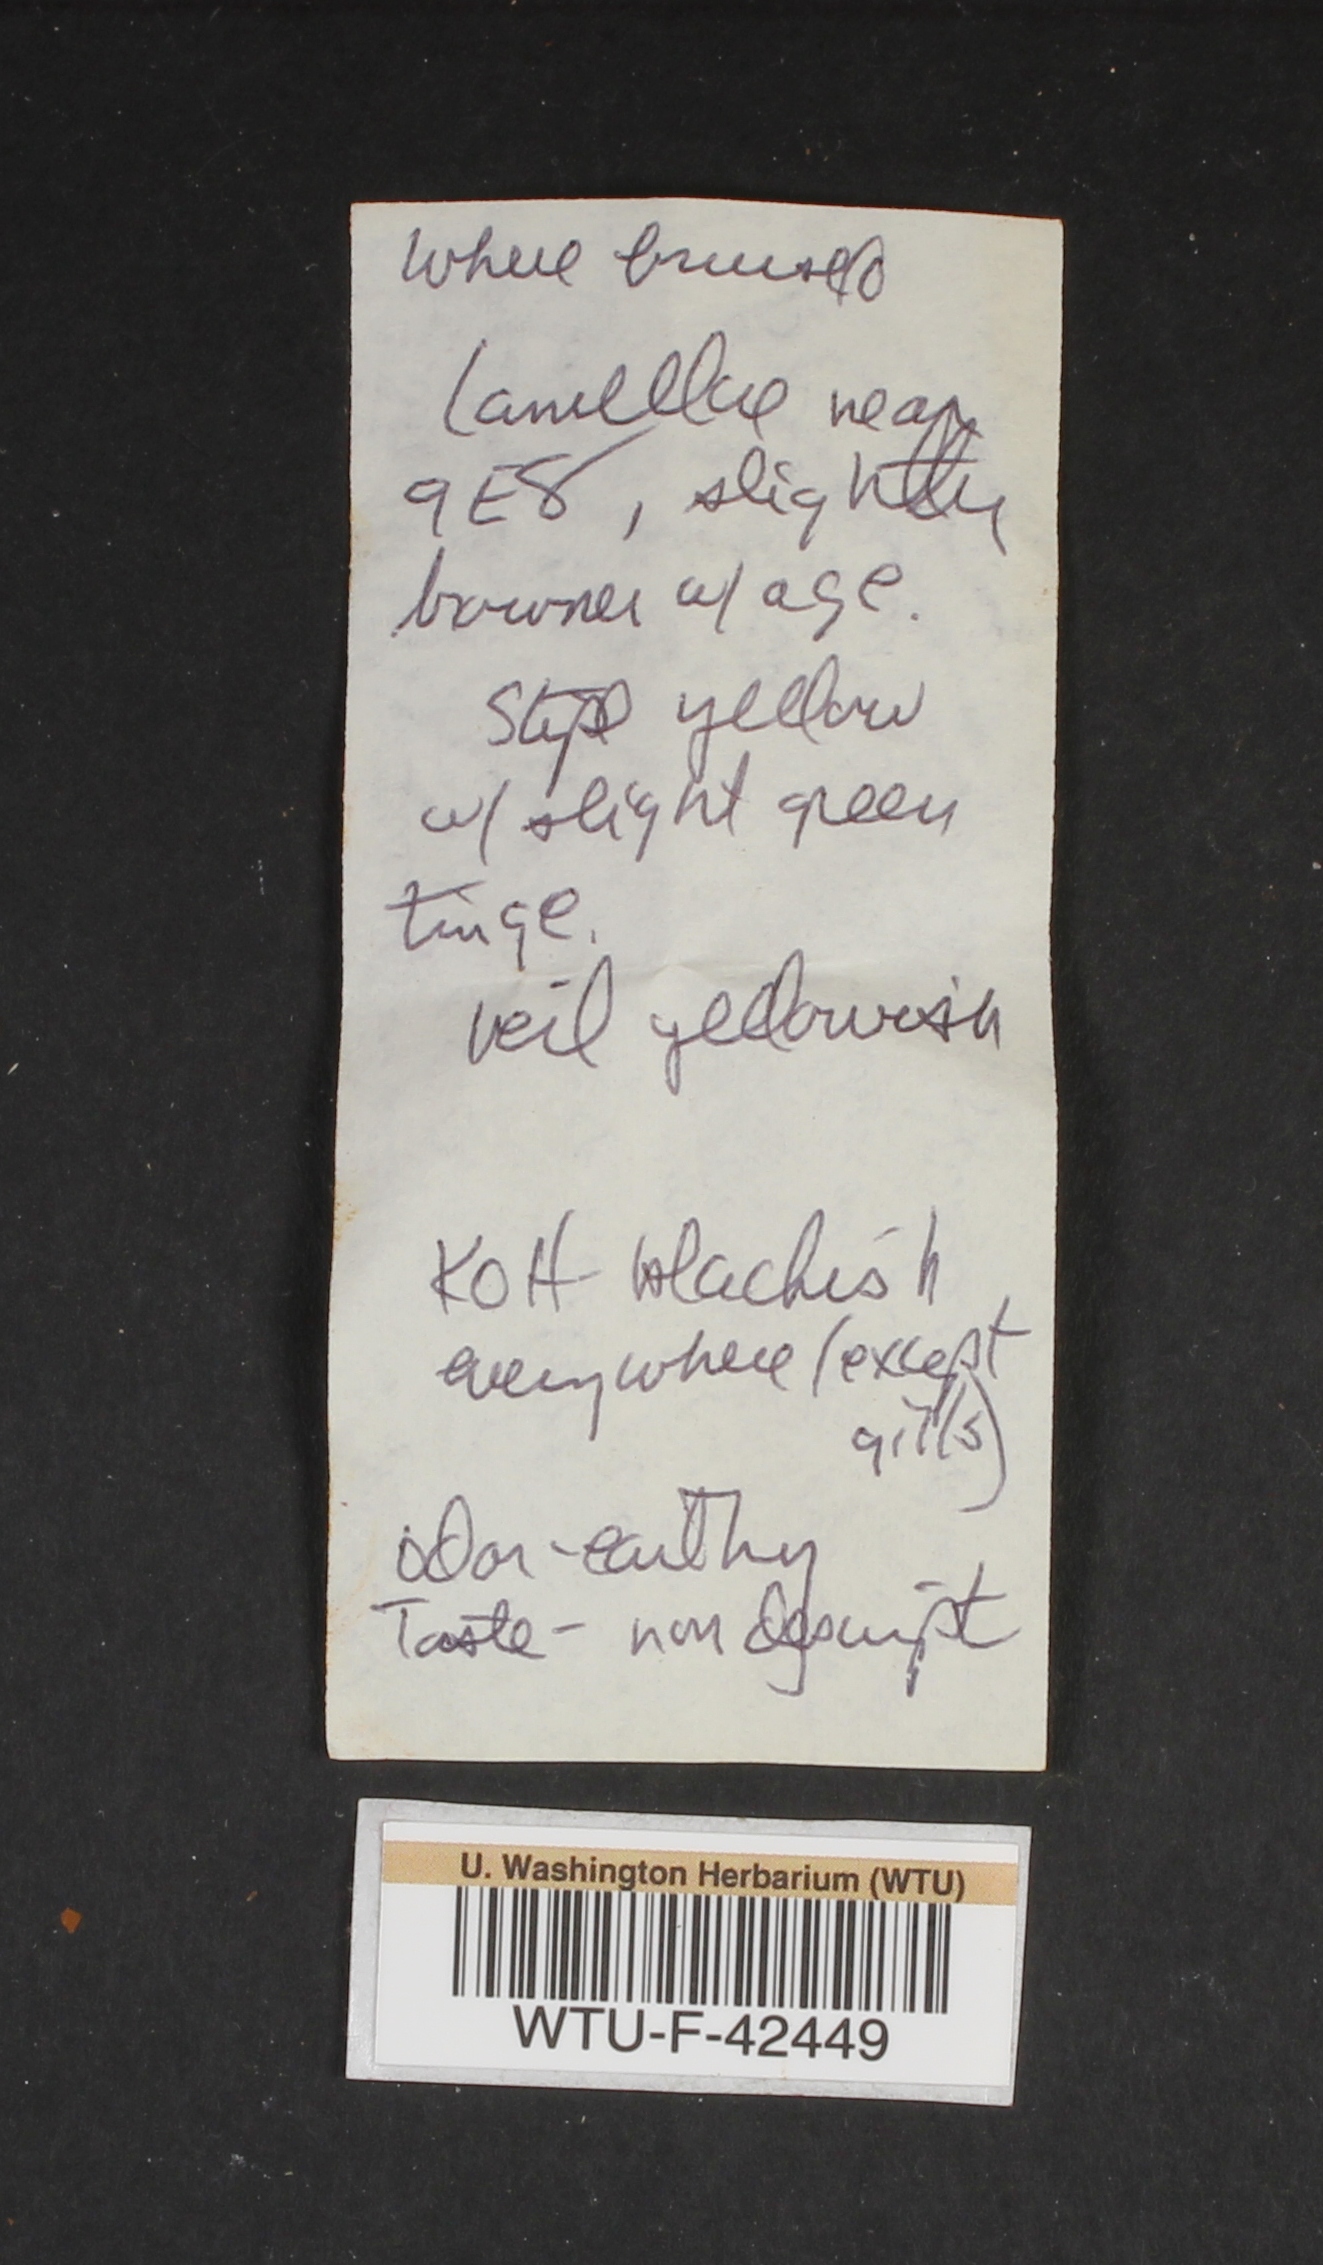 where bruised
Lamellae near
9E8, slightly
browner w/ age.
Stipe yellow
w/ slight green
tinge.
veil yellowish
KOH - blackish
everywhere (except
gills)
odor - earthy
Taste - nondescript
U. Washington Herbarium (WTU)
WTU-F-42449